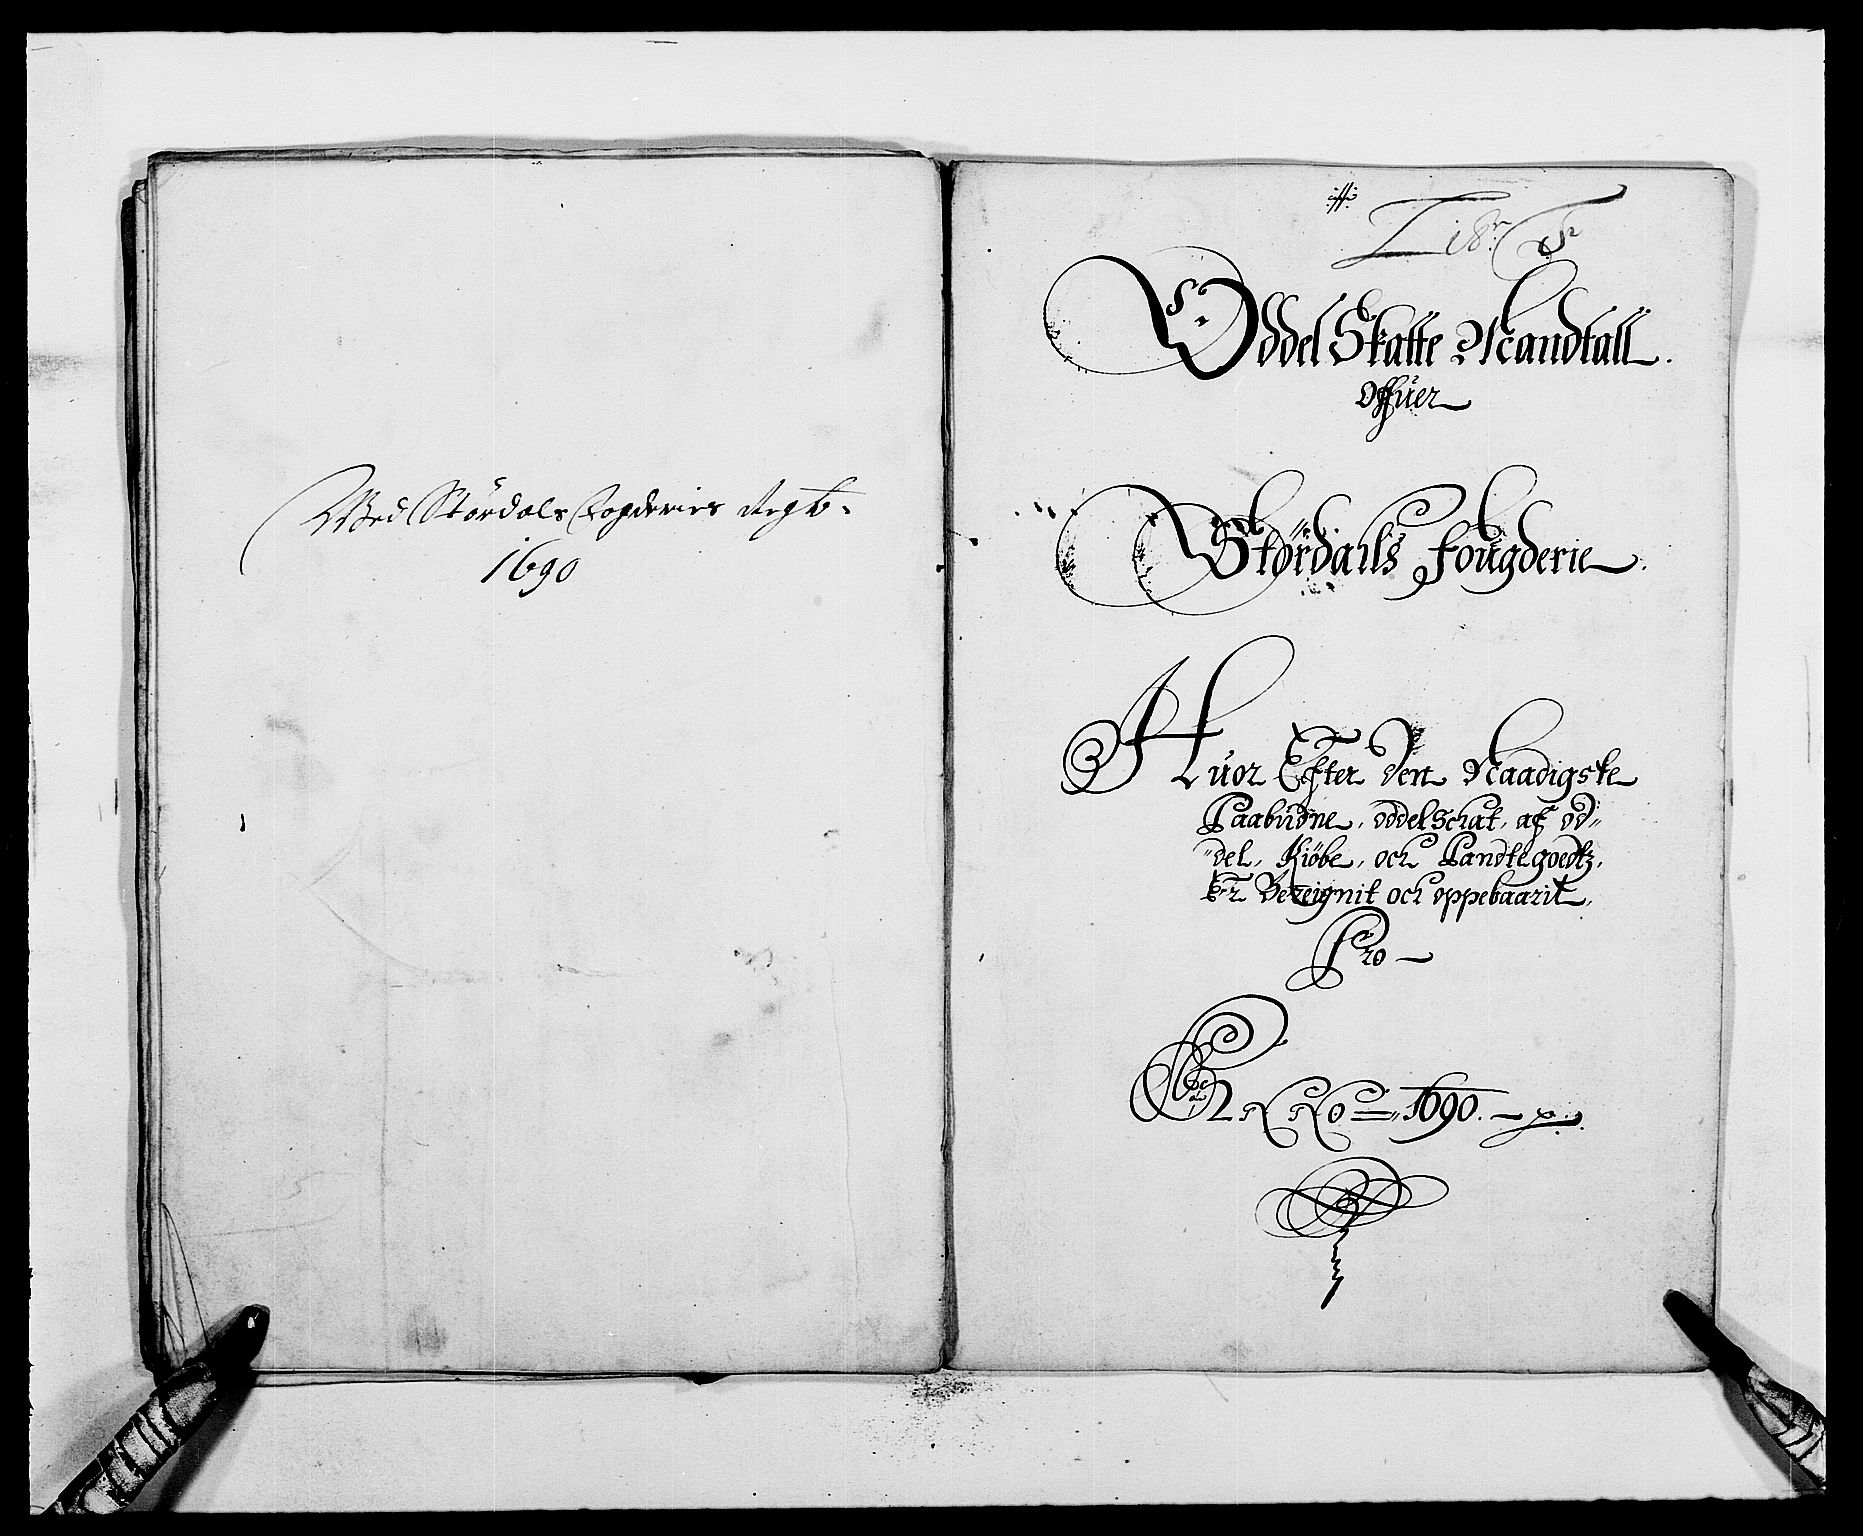 Med Stördals Fogderies Regb.
1690
Oddel Skatte Mandtall.
offuer
Stördalls Fougderie.
Huor Efter den Naadigste
Paabudne, oddelschat, af od„
„del, Kiöbe, och Pandtegoedtz,
Er Bereignit och oppebaarit,
Pro
1690.